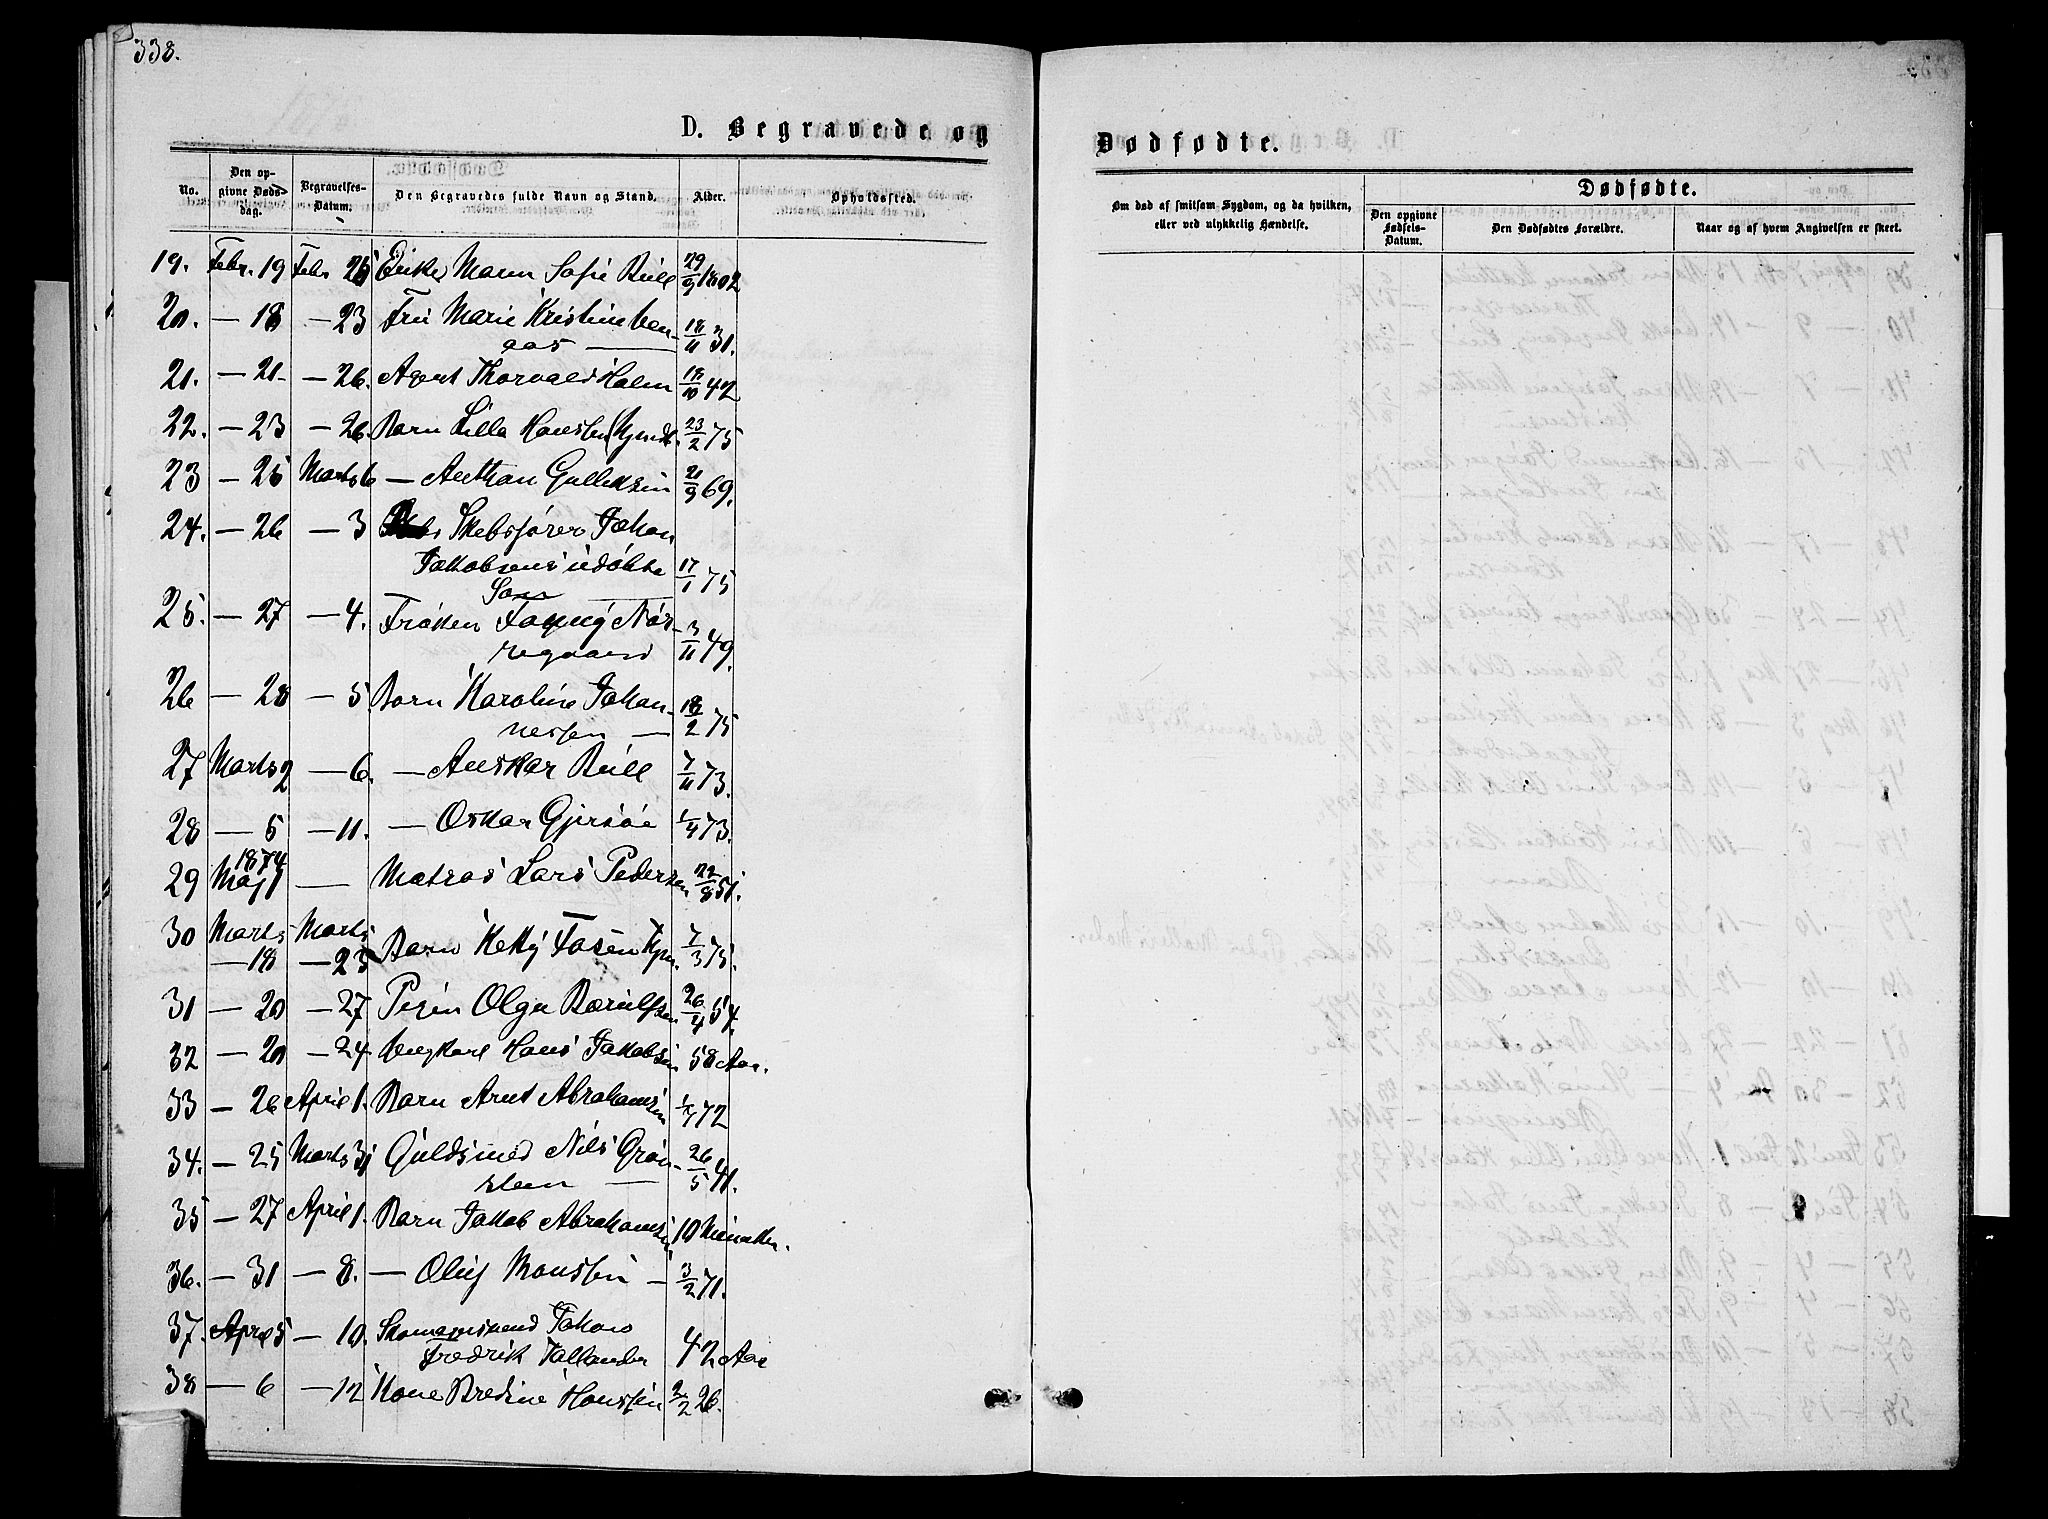 338.
D. Begravede og
Dødfødte.
No.
Den op-
givne Døds-
dag.
Begravelses-
Datum.
Den Begravedes fulde Navn og Stand.
Alder.
Opholdssted.
Om død af smitsom Sygdom, og da hvilken,
eller ved ulykkelig Hændelse.
Dødfødte.
Den opgivne
Fødsels-
Datum.
Den Dødfødtes Forældre.
Naar og af hvem Angivelsen er skeet.
19. Febr. 19 Febr 25 Enke Maren Sofie Bull 29/9 1802
20. — 18 — 23 Fru Marie Kristine 18/11 31.
21. — 21 — 26. Agent Thorvald Holm 18/10 42
22. — 23 — 26. Barn Lilla Hanssen 23/2 75
23 — 25 Marts 6 — Anthon Gulliksen 21/9 69.
24. — 26 — 3 Skibsfører Johan
Jakobsens udøbte 17/1 75
Søn
25. — 27 — 4. Frøken Fanny Nør-
regaard 3/11 49.
26 — 28 — 5 Barn Karoline Johan-
nessen — 18/2 75
27 Marts 2 — 6. — Anskar Bull 7/11 73.
28 — 5 — 11. — Oskar Gjersøe 1/4 73.
29 1874 Maj 1 — Matros Lars Pedersen 22/8 51.
30 Marts Marts
— 18 — 23 Barn Ketty Fosen 7/3 75.
31 — 20 — 27 Pigen Olga Bærulfsen 26/4 54.
32 — 20 — 24 Ungkarl Hans Jakobsen 58 Aar.
33 — 26 April 1. Barn Arnt Abrahamsen 1/7 72
34. — 25 Marts 31 Guldsmed Nils Grøn-
sten — 26/5 41.
35 — 27 April 1. Barn Jakob Abrahamsen 10 Maaneder.
36. — 31 — 8. — Oluf Monssen — 3/2 71.
37. April 5 — 10. Skomagersvend Johan
Fredrik Tallander 42 Aar
38 — 6 — 12 Kone Bredine Hanssen 2/2 26.